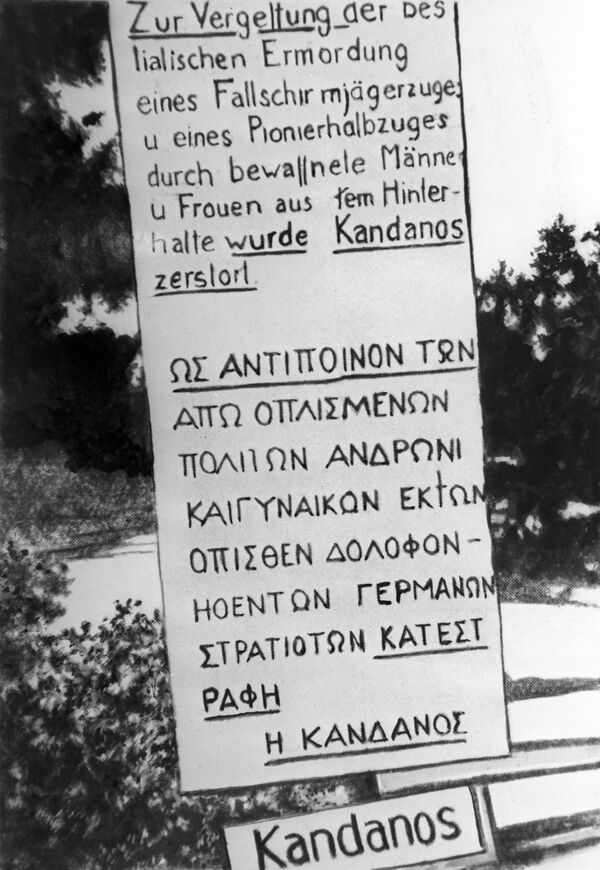 Zur Vergeltung der bes
tialischen Ermordung
eines Fallschirmjägerzuges
u eines Pionierhalbzuges
durch bewaffnete Männer
u Frauen aus dem Hinter-
halte wurde Kandanos
zerstört.
ΩΣ ΑΝΤΙΠΟΙΝΟΝ ΤΩΝ
ΑΠΩ ΟΠΛΙΣΜΕΝΩΝ
ΠΟΛΙΤΩΝ ΑΝΔΡΩΝΙ
ΚΑΙΓΥΝΑΙΚΩΝ ΕΚΤΩΝ
ΟΠΙΣΘΕΝ ΔΟΛΟΦΟΝ-
ΗΟΕΝΤΩΝ ΓΕΡΜΑΝΩΝ
ΣΤΡΑΤΙΟΤΩΝ ΚΑΤΕΣΤ
ΡΑΦΗ
Η ΚΑΝΔΑΝΟΣ
Kandanos